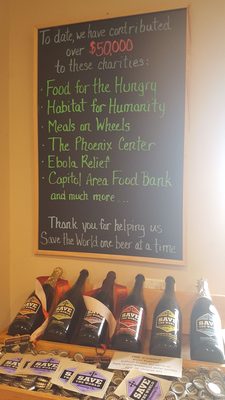 To date, we have contributed
over $50,000
to these charities:
· Food for the Hungry
· Habitat for Humanity
· Meals on Wheels
· The Phoenix Center
· Ebola Relief
· Capitol Area Food Bank
and much more...
Thank you for helping us
Save the World one beer at a time
SAVE
SAVE
SAVE
SAVE
SAVE
SAVE
SAVE
SAVE